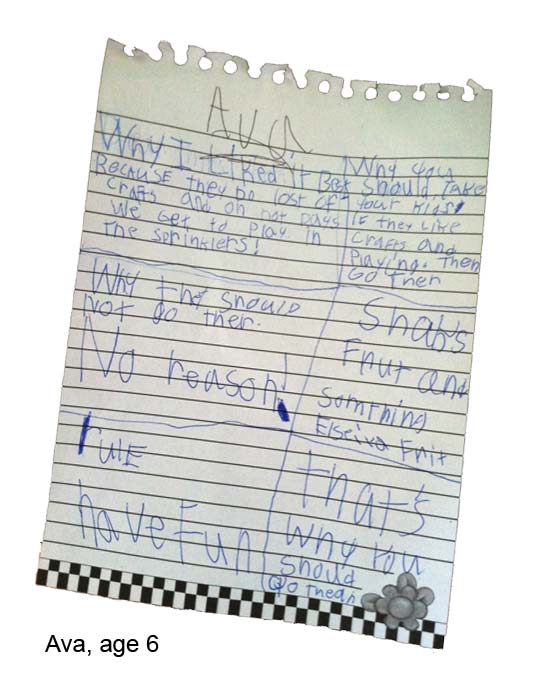 AVA
Why I Liked it Best
Because they Do lost of
Crafts and on hot Days
We Get to play in
The sprinklers!
Why you
Should Take
your Kids!
IF they like
Crafts and
Playing. Then
GO Then
Why they should
Not go ther.
No reason!
Snabs
Frut and
Somthing
Else
Frit
rulE
have Fun
that's
Why You
Should
go
Ava, age 6